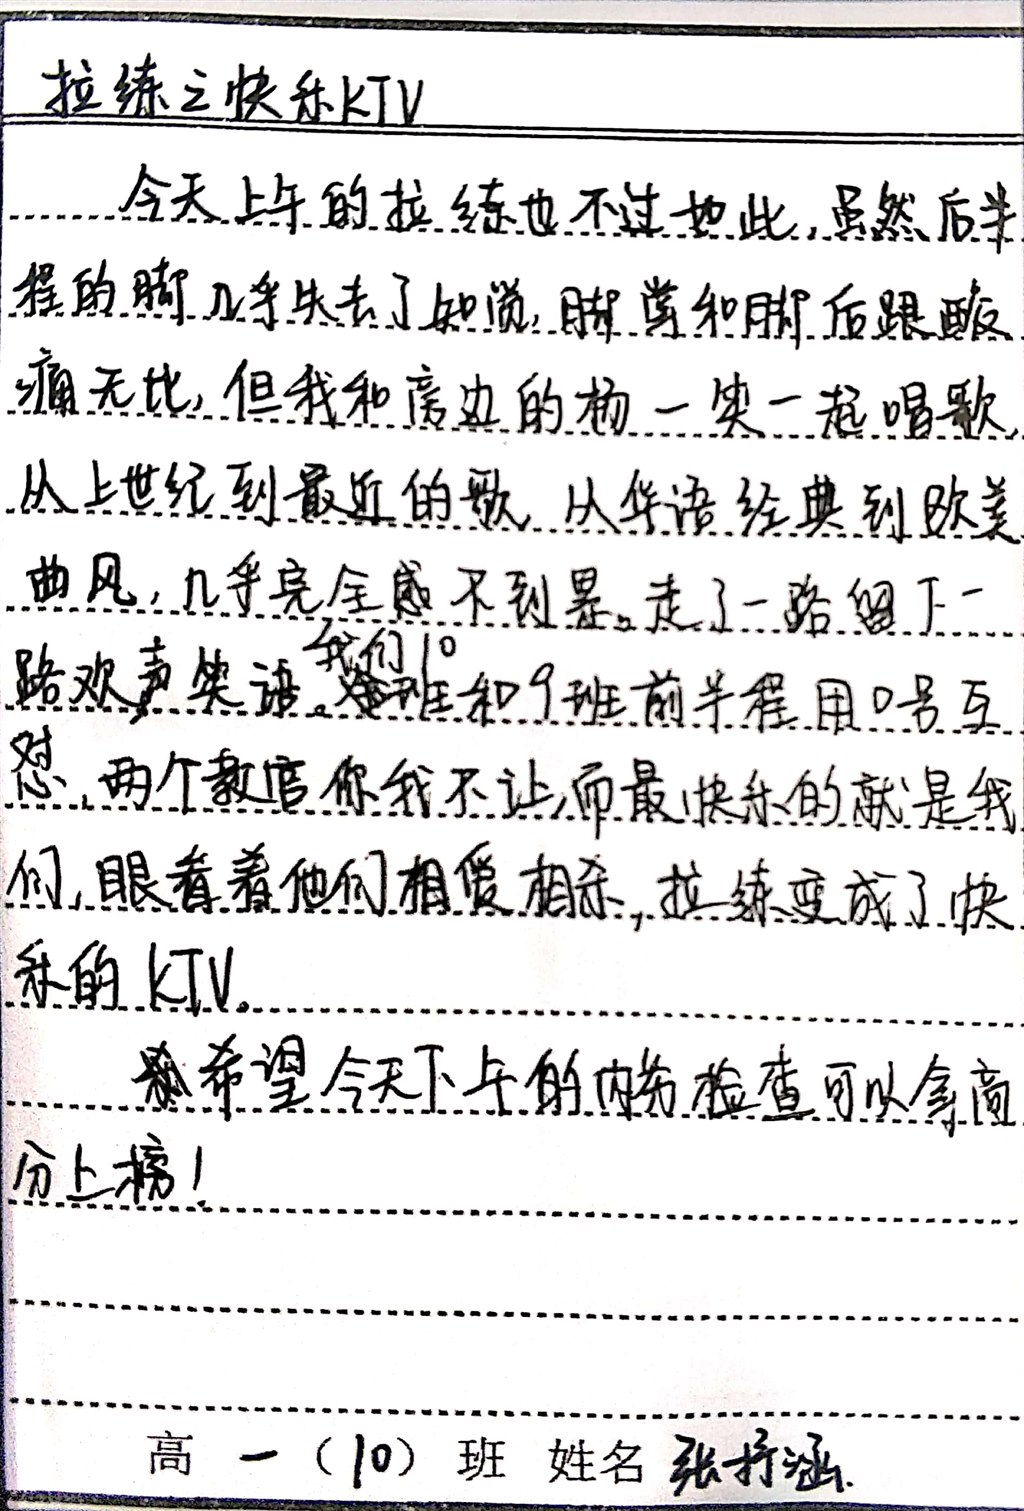 拉练之快乐KTV
今天上午的拉练也不过如此,虽然后半
程的脚几乎失去了知觉,脚掌和脚后跟酸
痛无比,但我和旁边的杨一笑一起唱歌,
从上世纪到最近的歌,从华语经典到欧美
曲风,几乎完全感不到累。走了一路留下一
路欢声笑语。我们10班和9班前半程用口号互
怼,两个教官你我不让,而最快乐的就是我
们,眼看着他们相爱相杀,拉练变成了快
乐的KTV。
希望今天下午的内务检查可以拿高
分上榜!
高一(10)班 姓名 张抒涵